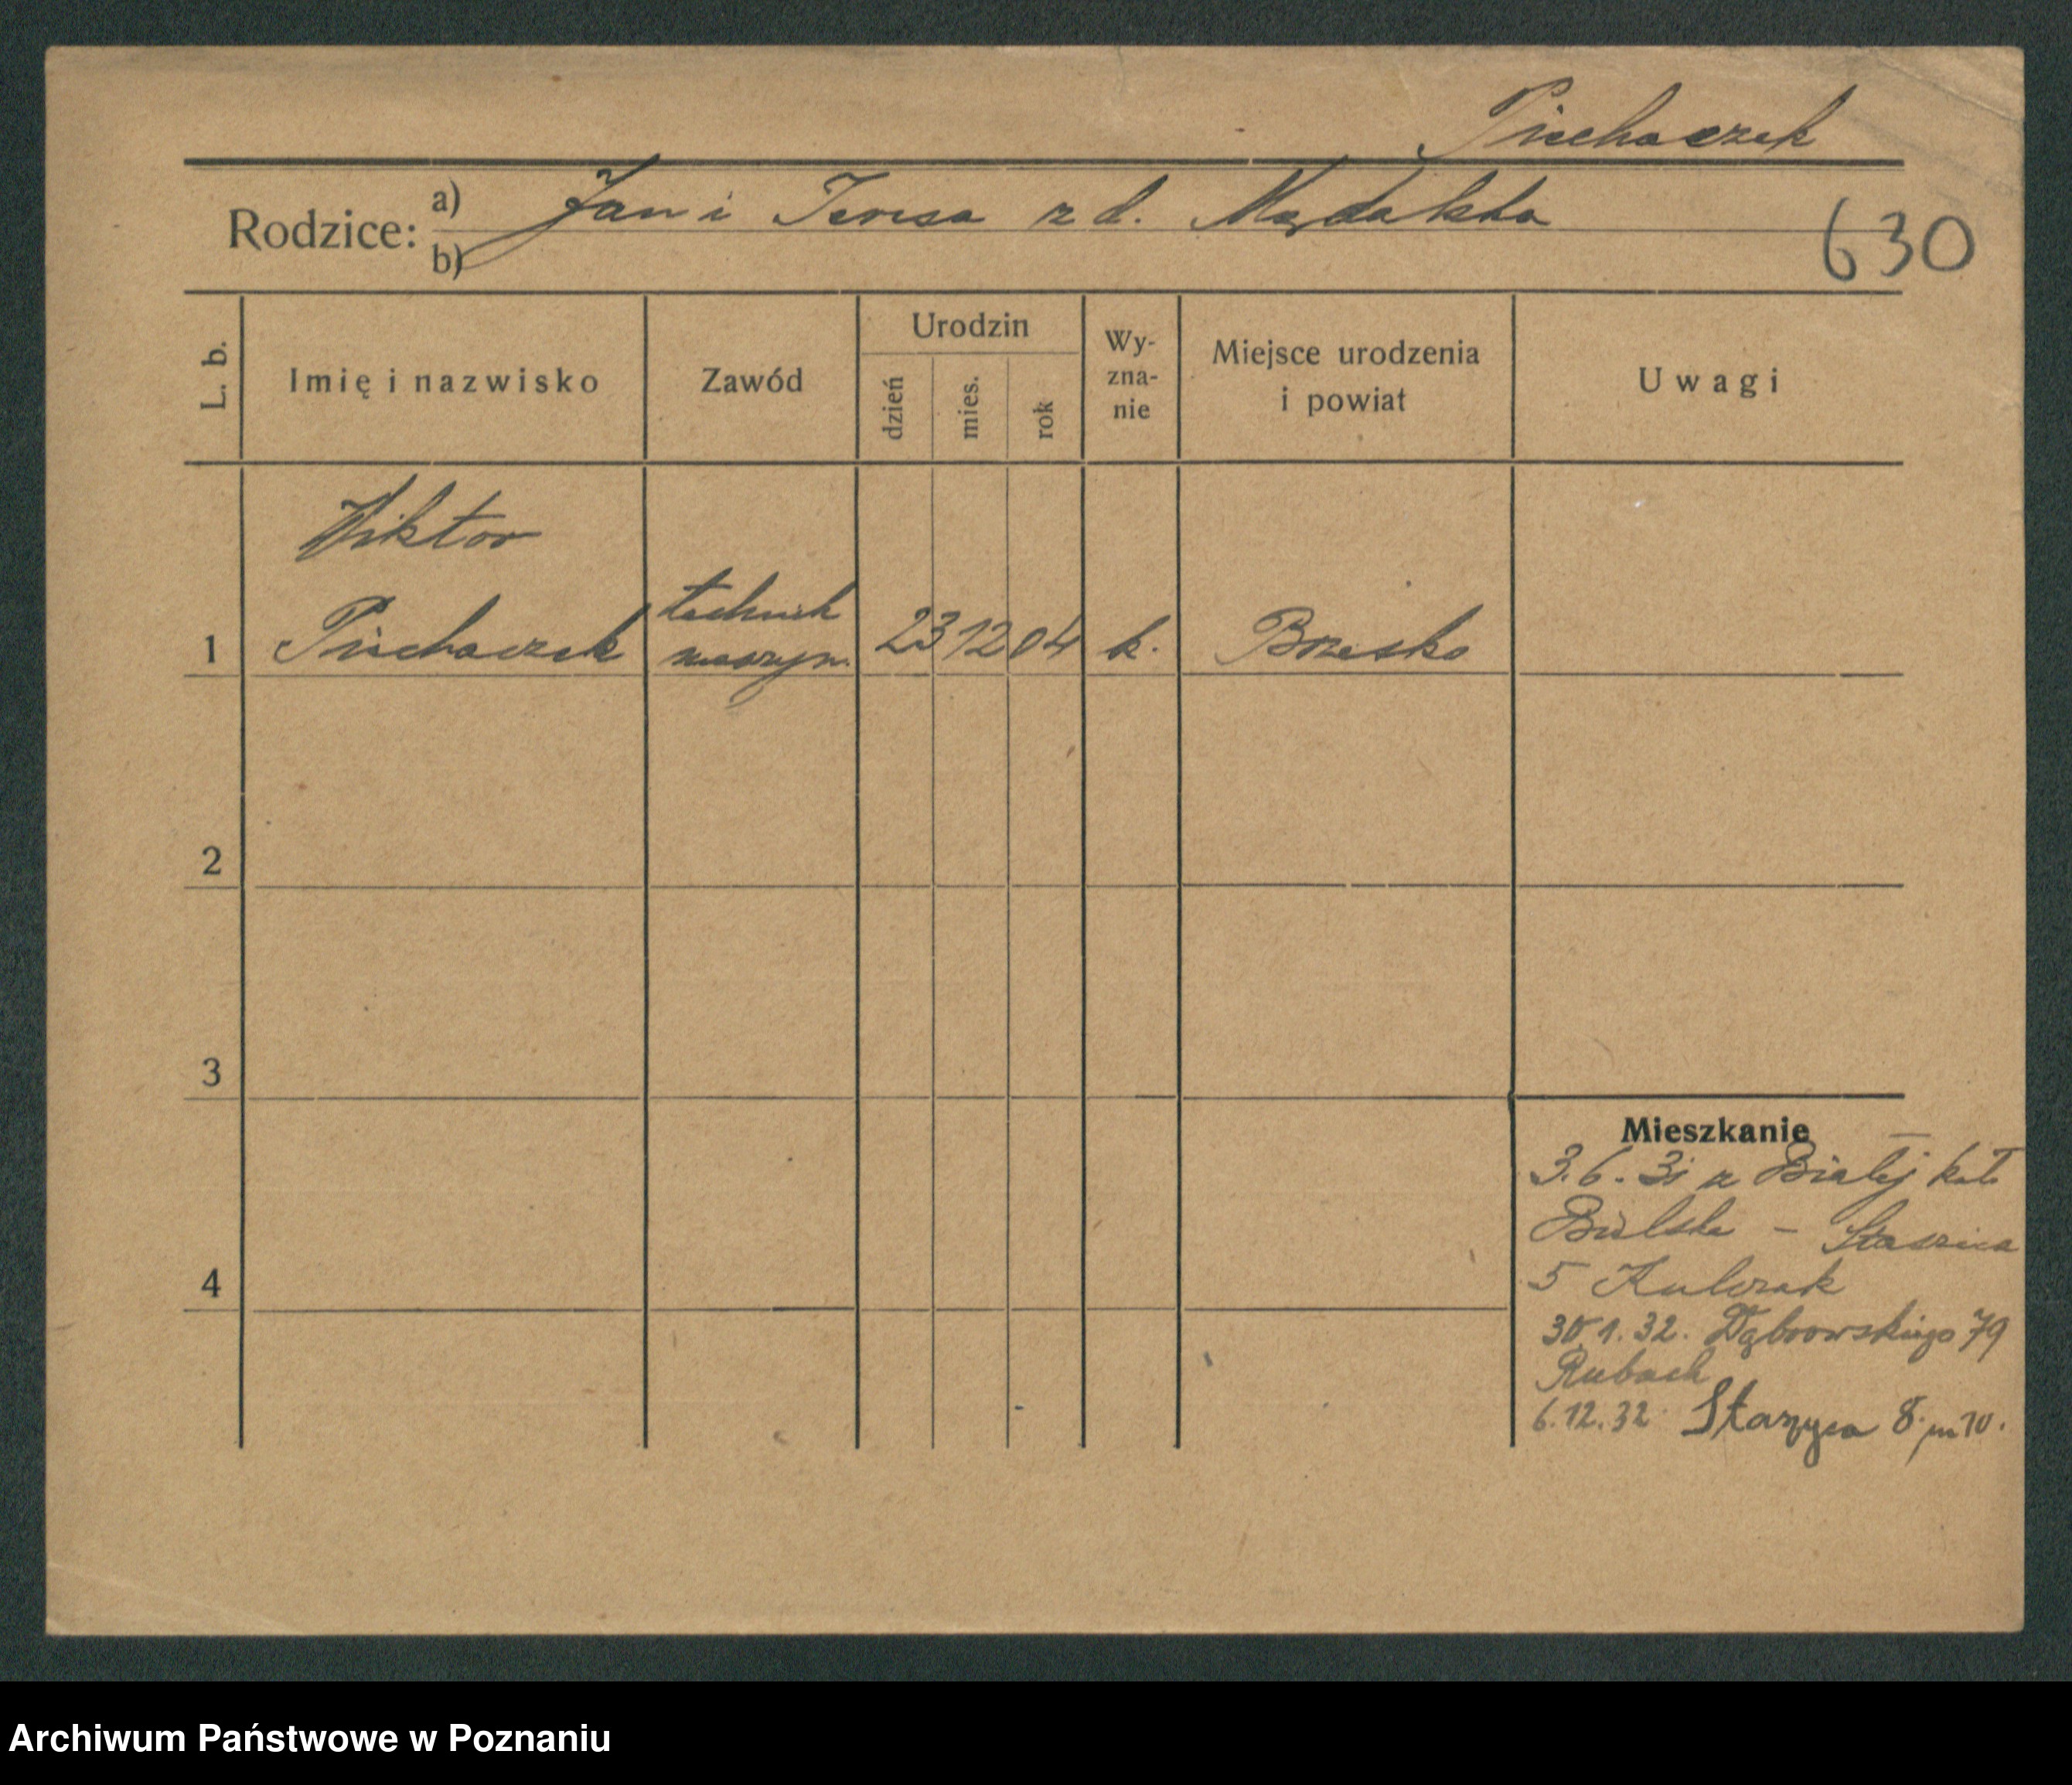 Piechaczek
Rodzice: a) Jan i Teresa z d.
b)
630
L. b.
Imię i nazwisko
Zawód
Urodzin
dzień
mies.
rok
Wy-
zna-
nie
Miejsce urodzenia
i powiat
Uwagi
Wiktor
1 Piechaczek
technik
maszyn.
23 12 04 k. Brzesko
2
3
4
Mieszkanie
3.6.31 z Białej koło
Bielska - Staszica
5 Kulczak
30.1.32. Dąbrowskiego 79
Rubach
6.12.32 8 m 10.
Archiwum Państwowe w Poznaniu